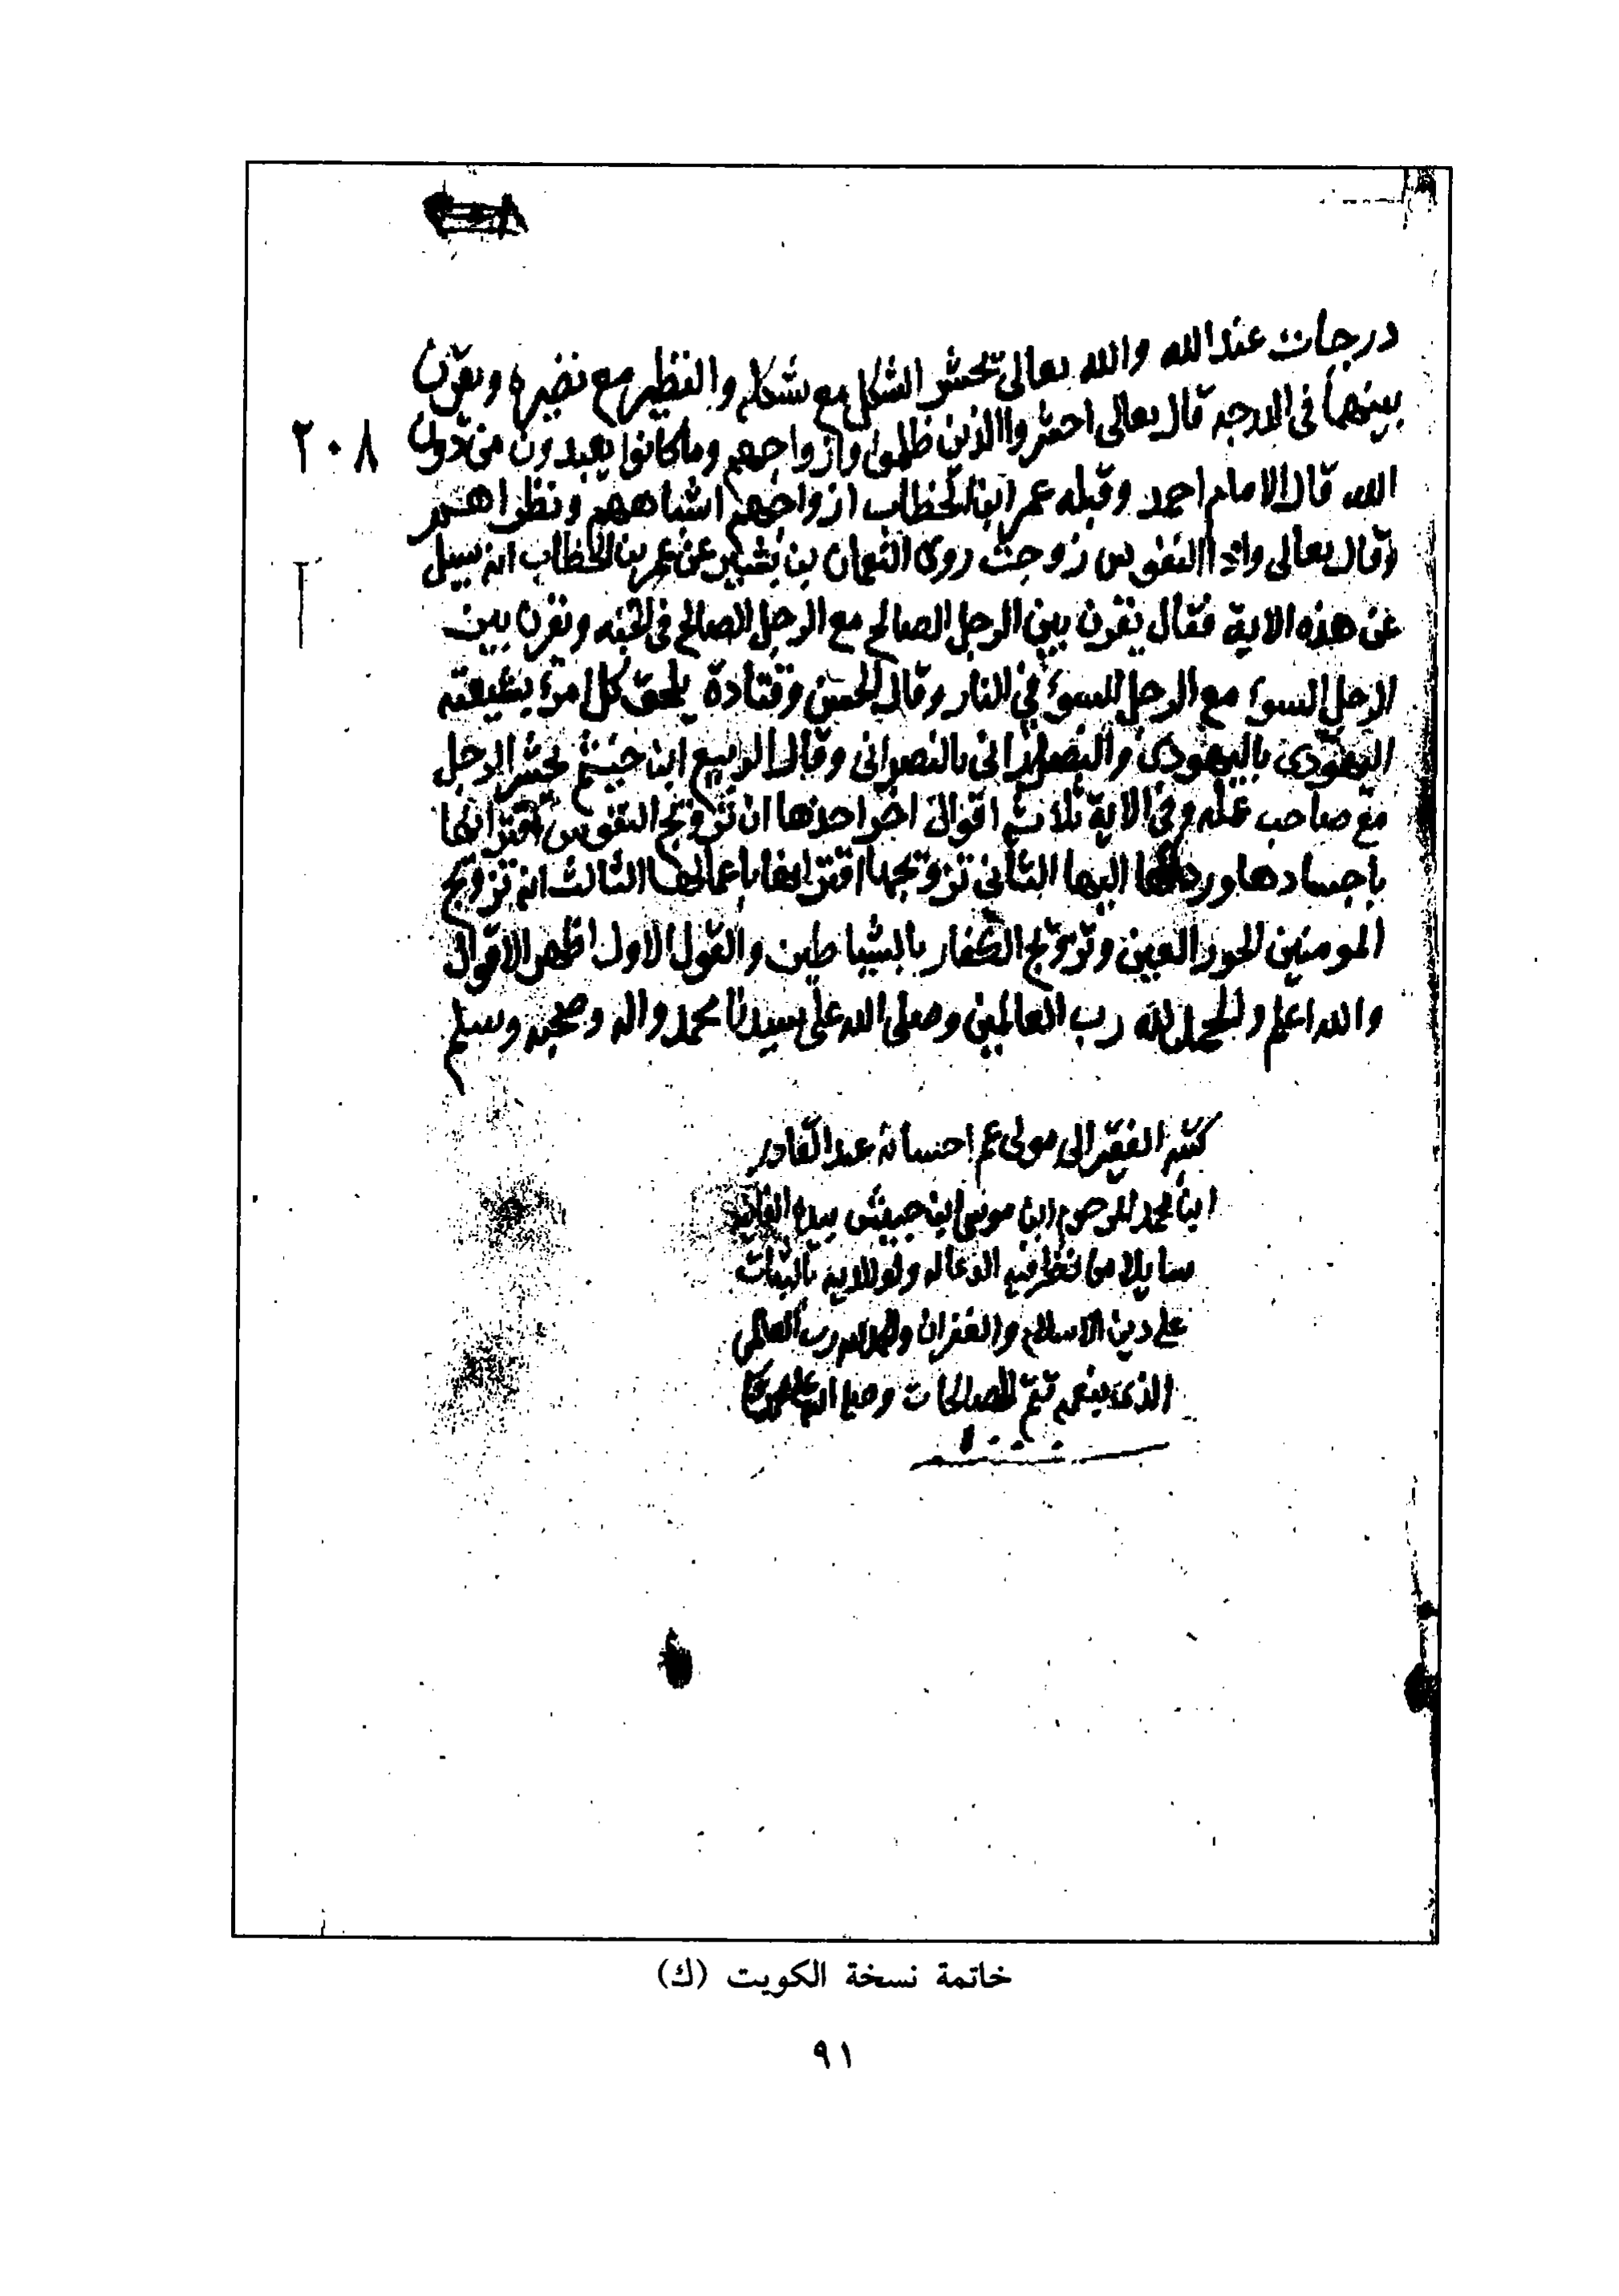 درجات عند الله والله تعالى يحشر الشكل مع شكله والنظير مع نضيره ويقرن
بينهما في الدرجه قال تعالى احشروا الذين ظلموا وازواجهم وما كانوا يعبدون من دون
٢٠٨
الله قال الامام احمد وقبله عمر ابن الخطاب ازواجهم اشباههم ونظراهم
وقال تعالى واذا النفوس زوجت روى النعمان بن بشير عن عمر بن الخطاب انه سيل
عن هذه الاية فقال يقرن بين الرجل الصالح مع الرجل الصالح في الجنه ونقرن بين
الرجل السوء مع الرجل السوء في النار وقال الحسن وقتادة يلحق كل امرء بشيعته
اليهودي باليهودي والنصراني بالنصراني وقال الربيع ابن خيثم يحشر الرجل
مع صاحب عمله وفي الاية ثلاثة اقوال اخر احدها ان تزويج النفوس اقترانها
باجسادها وردها اليها الثاني تزويجها اقترانها باعمالها الثالث انه تزويج
المومنين الحور العين وتزويج الكفار بالشياطين والقول الاول اظهر الاقوال
والله اعلم والحمد لله رب العالمين وصلى الله على سيدنا محمد واله وصحبه وسلم
كتبه الفقير الى مولى عم احسانه عبد القادر
ابن محمد المرحوم ابن موسى ابن حبيش بيده الفانيه
سايلا من نظر فيه الدعا له ولوالديه بالثبات
على دين الاسلام والغفران والحمد لله رب العالمين
الذي بنعمته تتم الصالحات وصلى الله على
خاتمة نسخة الكويت (ك)
٩١